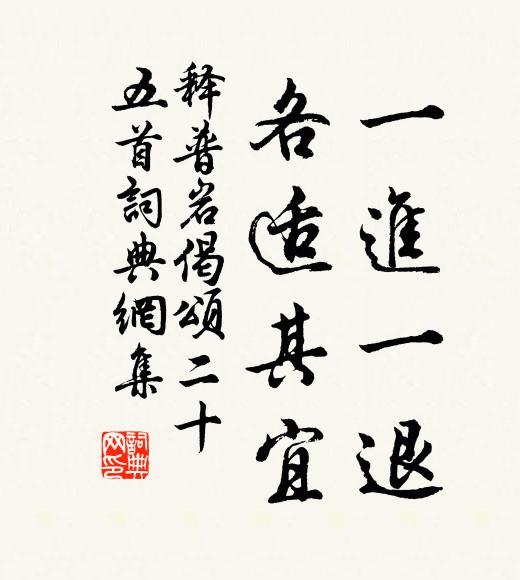 一進一退
各适其宜
释普岩偈頌二十
五首詞典網集
詞典
网印